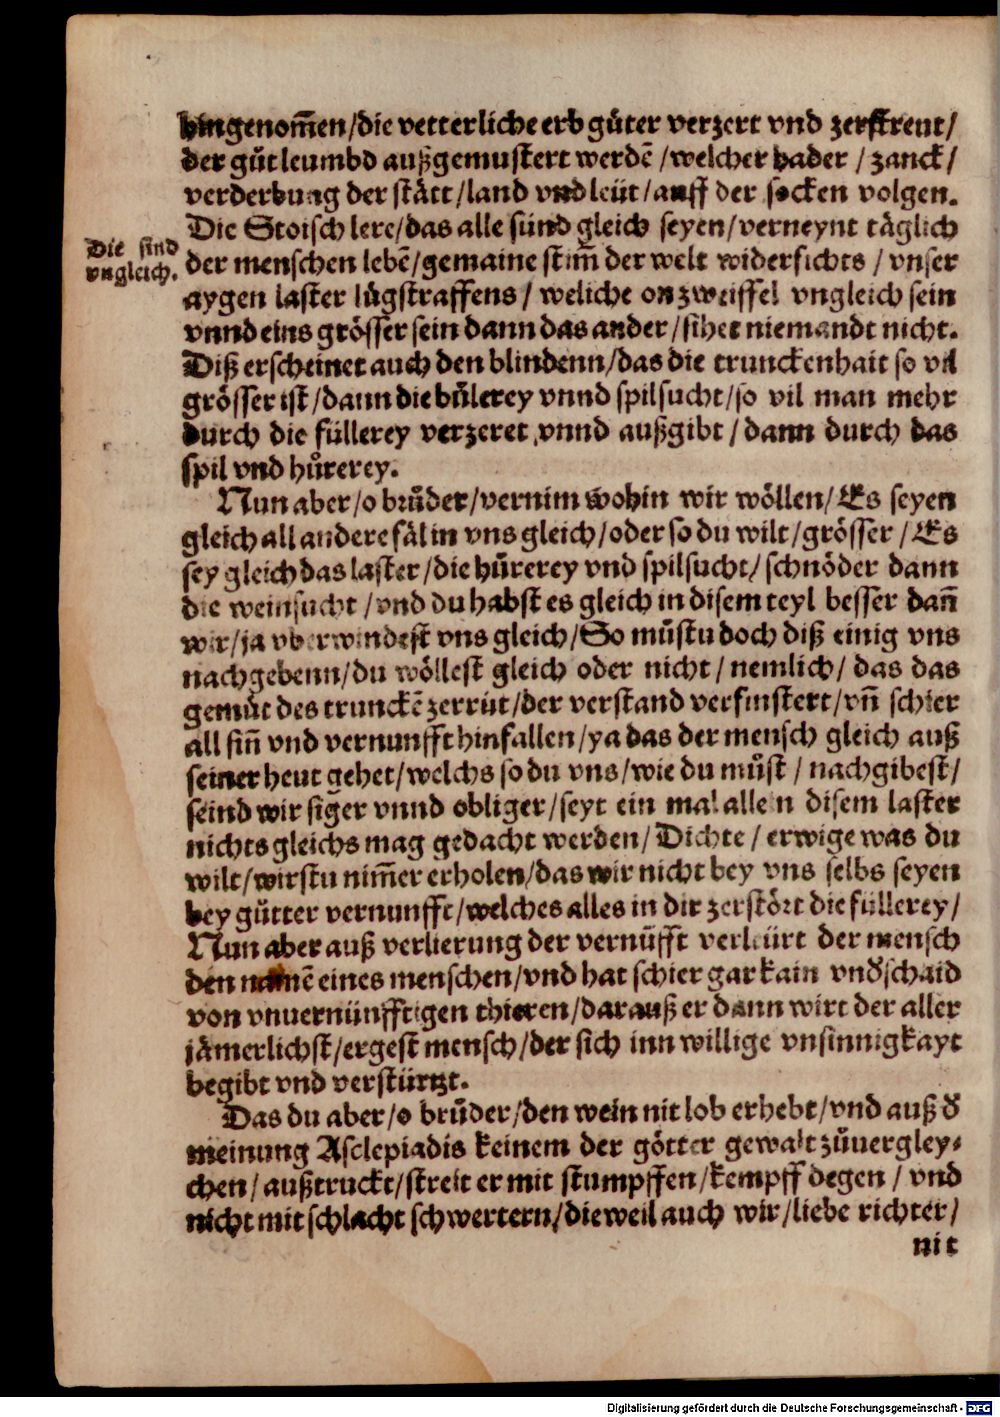 hingenom̃en/die vetterliche erb guͤter verzert vnd zerstreut/
der guͦt leumbd außgemustert werdẽ/welcher hader/zanck/
verderbung der stätt/land vnd leüt/auff der socken volgen.
Die Stoisch lere/das alle sünd gleich seyen/verneynt täglich
Die sind
vngleich.
der menschen lebẽ/gemaine stim̃ der welt widersichts/vnser
aygen laster lügstraffens/weliche on zweiffel vngleich sein
vnnd eins grösser sein dann das ander/sihet niemandt nicht.
Diß erscheinet auch den blindenn/das die trunckenhait so vil
grösser ist/dann die buͤlerey vnnd spilsucht/so vil man mehr
durch die füllerey verzeret vnnd außgibt/dann durch das
spil vnd huͦrerey.
Nun aber/o bruͤder/vernim wohin wir wöllen/Es seyen
gleich all andere fäl in vns gleich/oder so du wilt/grösser/Es
sey gleich das laster/die huͦrerey vnd spilsucht/schnöder dann
die weinsucht/vnd du habst es gleich in disem teyl besser dañ
wir/ja vberwindest vns gleich/So muͤstu doch diß einig vns
nachgebenn/du wöllest gleich oder nicht/nemlich/das das
gemuͤt des trunckẽ zerrüt/der verstand verfinstert/vñ schier
all siñ vnd vernunfft hinfallen/ya das der mensch gleich auß
seiner heut gehet/welchs so du vns/wie du muͤst/nachgibest/
seind wir siger vnnd obliger/seyt ein mal allein disem laster
nichts gleichs mag gedacht werden/Dichte/erwige was du
wilt/wirstu nim̃er erholen/das wir nicht bey vns selbs seyen
bey guͤtter vernunfft/welches alles in dir zerstört die füllerey/
Nun aber auß verlierung der vernüfft verleürt der mensch
den namẽ eines menschen/vnd hat schier gar kain vnd̕schaid
von vnuernünfftigen thieren/darauß er dann wirt der aller
jämerlichst/ergest mensch/der sich inn willige vnsinnigkayt
begibt vnd verstürtzt.
Das du aber/o bruͤder/den wein nit lob erhebt/vnd auß d̕
meinung Asclepiadis keinem der götter gewalt zuͦuergley⸗
chen/außtruckt/streit er mit stumpffen/kempff degen/vnd
nicht mit schlacht schwertern/dieweil auch wir/liebe richter/
nit
Digitalisierung gefördert durch die Deutsche Forschungsgemeinschaft - DFG